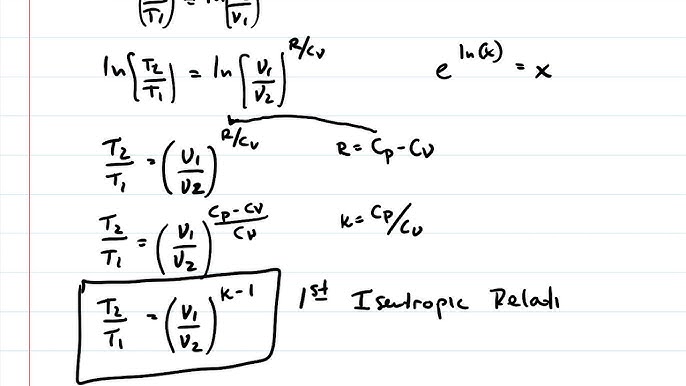 (T₁) = ln (ν₁)
ln[T₂/T₁] = ln[ν₁/ν₂]^(R/Cν) e^(ln(x)) = x
T₂/T₁ = (ν₁/ν₂)^(R/Cν) R = Cp - Cν
T₂/T₁ = (ν₁/ν₂)^((Cp - Cν)/Cν) k = Cp/Cν
T₂/T₁ = (ν₁/ν₂)^(k-1) 1st Isentropic Relati